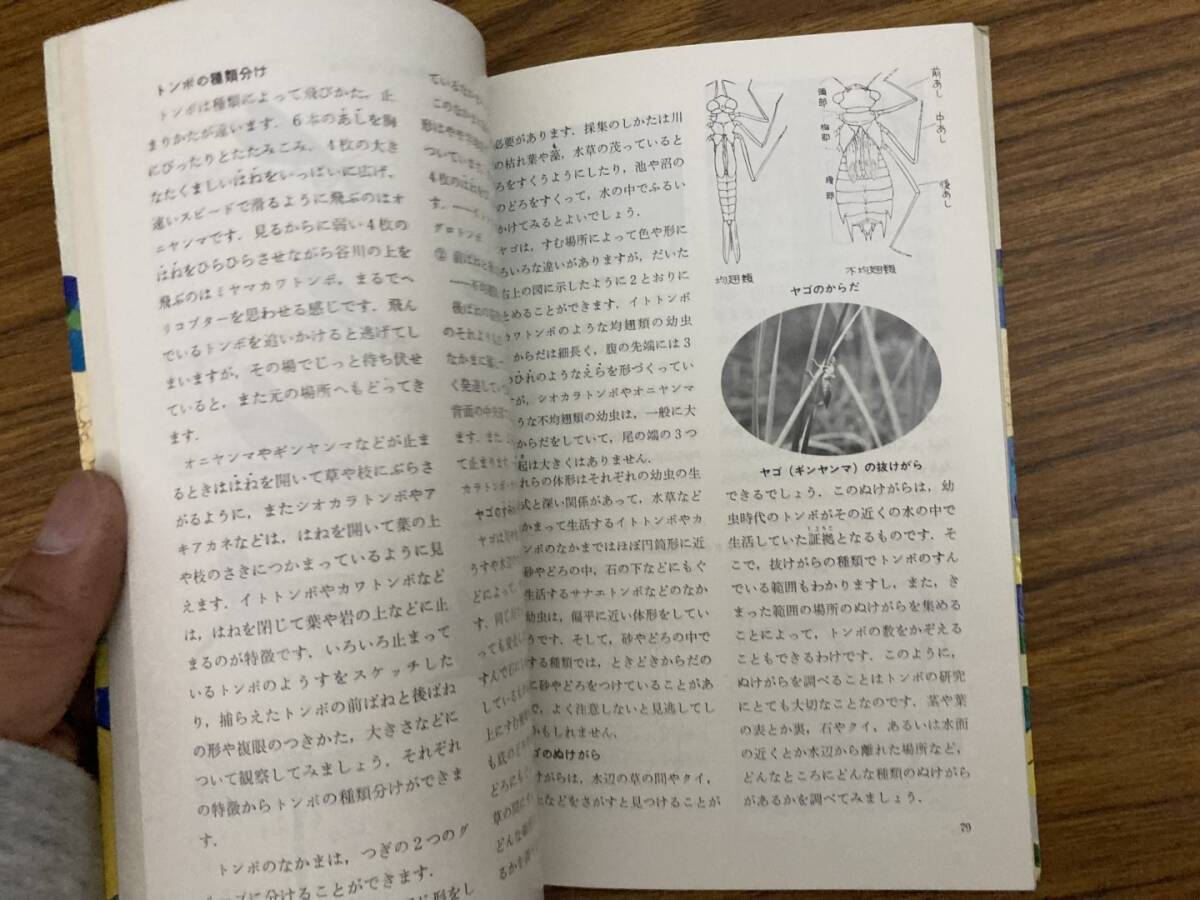 トンボの種類分け
トンボは種類によって飛びかた，止
まりかたが違います．6本のあしを胸
にぴったりとたたみこみ，4枚の大き
なたくましいはねをいっぱいに広げ，
速いスピードで滑るように飛ぶのはオ
ニヤンマです．見るからに弱い4枚の
はねをひらひらさせながら谷川の上を
飛ぶのはミヤマカワトンボ，まるでヘ
リコプターを思わせる感じです．飛ん
でいるトンボを追いかけると逃げてし
まいますが，その場でじっと待ち伏せ
ていると，また元の場所へもどってき
ます．
オニヤンマやギンヤンマなどが止ま
るときははねを開いて草や枝にぶらさ
がるように，またシオカラトンボやア
キアカネなどは，はねを開いて葉の上
や枝のさきにつかまっているように見
えます．イトトンボやカワトンボなど
は，はねを閉じて葉や岩の上などに止
まるのが特徴です．いろいろ止まって
いるトンボのようすをスケッチした
り，捕らえたトンボの前ばねと後ばね
の形や複眼のつきかた，大きさなどに
ついて観察してみましょう．それぞれ
の特徴からトンボの種類分けができま
す．
トンボのなかまは，つぎの2つのグ
ループに分けることができます．
ているなか
このなか
形はやや
ついています
4枚のはね
す．
② 前ばねと後
——不均翅
後ばねの
のそれより
なかまに
く発達してい
背面の中央
ます．また
て止まります
カラトンボ
ヤゴのすみ
ヤゴは
うすや水
どによって
す．同じ
っても
すんで
している
上に
も底の
どろにも
草の間
どんな
るかを
必要があります．採集のしかたは川
の枯れ葉や藻，水草の茂っていると
ろをすくうようにしたり，池や沼の
のどろをすくって，水の中でふるい
かけてみるとよいでしょう．
ヤゴは，すむ場所によって色や形に
ろいろな違いがありますが，だいた
右上の図に示したように2とおりに
とめることができます．イトトンボ
カワトンボのような均翅類の幼虫
からだは細長く，腹の先端には3
のひれのようなえらを形づくってい
が，シオカラトンボやオニヤンマ
うな不均翅類の幼虫は，一般に大
からだをしていて，尾の端の3つ
起は大きくはありません．
れらの体形はそれぞれの幼虫の生
式と深い関係があって，水草など
かまって生活するイトトンボやカ
ンボのなかまではほぼ円筒形に近
砂やどろの中，石の下などにもぐ
生活するサナエトンボなどのなか
幼虫は，偏平に近い体形をしてい
うです．そして，砂やどろの中で
する種類では，ときどきからだの
に砂やどろをつけていることがあ
で，よく注意しないと見逃してし
かもしれません．
ゴのぬけがら
けがらは，水辺の草の間やクイ，
となどをさがすと見つけることが
前あし
頭部
中あし
胸部
後あし
腹部
均翅類
不均翅類
ヤゴのからだ
ヤゴ（ギンヤンマ）の抜けがら
できるでしょう．このぬけがらは，幼
虫時代のトンボがその近くの水の中で
生活していた証拠となるものです．そ
こで，抜けがらの種類でトンボのすん
でいる範囲もわかりますし，また，き
まった範囲の場所のぬけがらを集める
ことによって，トンボの数をかぞえる
こともできるわけです．このように，
ぬけがらを調べることはトンボの研究
にとても大切なことなのです．茎や葉
の表とか裏，石やクイ，あるいは水面
の近くとか水辺から離れた場所など，
どんなところにどんな種類のぬけがら
があるかを調べてみましょう．
79